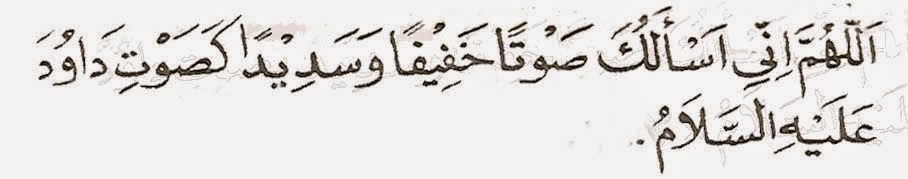 اَللّٰهُمَّ اِنِّي اَسْأَلُكَ صَوْتًا خَفِيْفًا وَسَدِيْدًا كَصَوْتِ دَاوُدَ
عَلَيْهِ السَّلَامُ.